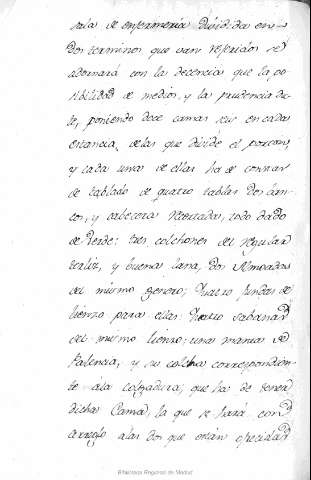 sala de enfermeria dividida en
dos terminos que van referidos se
adornará con la decencia que la po
sibilidad de medios, y la prudencia dic
te, poniendo doce camas en cada
estancia, delas que divide el
y cada una de ellas ha de constar
de tablado de quatro tablas dos ban
cos, y cabecera recortada, todo dado
de verde: tres colchones del regular
terliz, y buena lana, dos Almoadas
del mismo genero; quatro fundas de
lienzo para ellas quatro sabanas
del mismo lienzo; una manta de
Palencia, y su colcha correspondien
te ála colgadura, que ha de tener
dicha Cama, la que se hará con
arreglo alas dos que están
Biblioteca Regional de Madrid